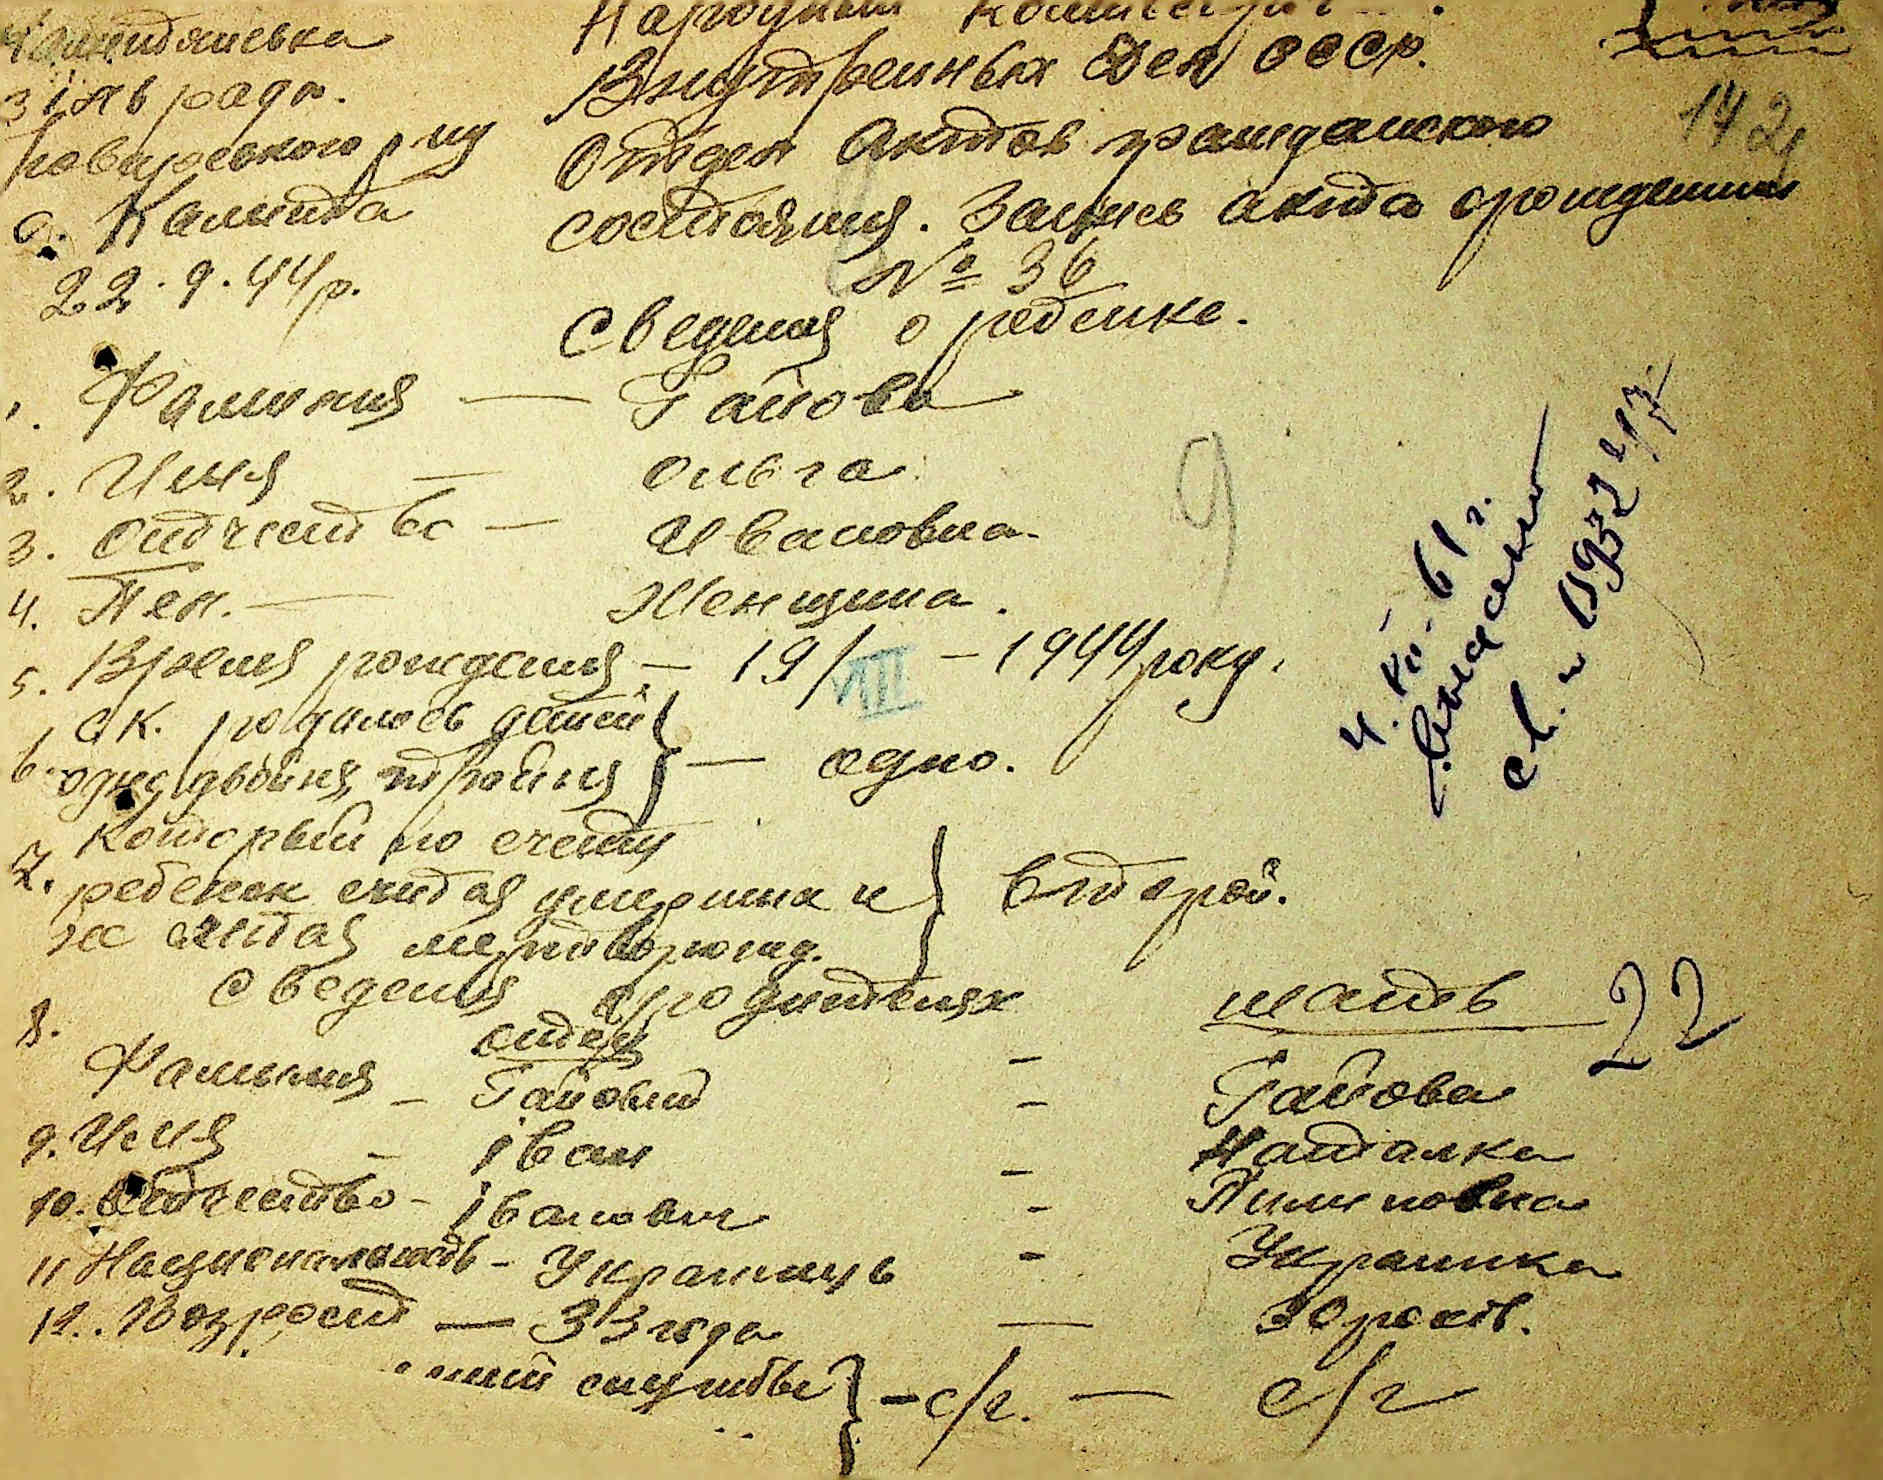 Народный Комиссариат
Внутренных Дел СССР.
Отдел Актов гражданского
состояния. Запись акта о рождении
№ 36
142
сільради.
с. Калинта
22.9.44р.
Сведения о ребенке.
1. Фамилия — Гайова
2. Имя — Ольга
3. Отчество — Ивановна
4. Пол. — Женщина.
5. Время рождения — 19/VIII — 1944 року.
6. Ск. родилось детей
одно, двойня, тройня } — одно.
7. Который по счету
ребенок считая умерших и
не считая мертворожд. } Второй.
9
4.VII-61 г.
22
Сведения о родителях
8. отец мать
Фамилия – Гайовий – Гайова
9. Имя – Іван – Наталка
10. Отчество – Іванович – Пилиповна
11 Национальность – Украинець – Украинка
12. Возраст — 33 года — 30 років.
службы } – с/г. — с/г